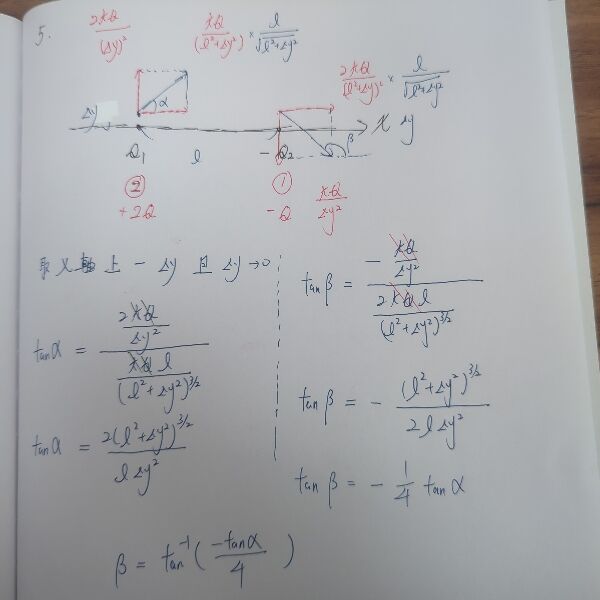 5.
2kQ/(Δy)²
kQ/(l²+Δy²) × l/√(l²+Δy²)
2kQ/(l²+Δy)² × l/√(l²+Δy²)
α
Δy
x Δy
β
Q₁ l -Q₂
② ①
+2Q -Q kQ/Δy²
取 X 軸上一 Δy 且 Δy→0
tanα = (2kQ/Δy²)/(kQ l/(l²+Δy²)^(3/2))
tanα = 2(l²+Δy²)^(3/2)/(l Δy²)
tanβ = (-kQ/Δy²)/(2kQ l/(l²+Δy²)^(3/2))
tanβ = - (l²+Δy²)^(3/2)/(2l Δy²)
tanβ = - 1/4 tanα
β = tan⁻¹(-tanα/4)